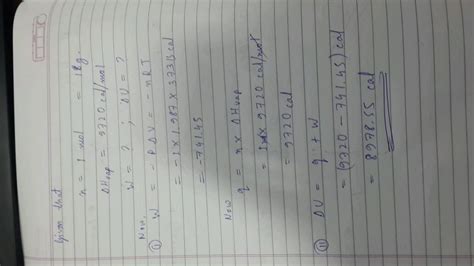 Given that
n = 1 mol = 18g.
ΔHvap = 9720 cal/mol
W = ? ; ΔU = ?
Now,
(i) W = -PΔV = -nRT
= -1 x 1.987 x 373.15 cal
= -741.45
Now
q = n x ΔHvap
= 1 x 9720 cal/mol
= 9720 cal
(ii) ΔU = q + W
= (9720 - 741.45) cal
= 8978.55 cal